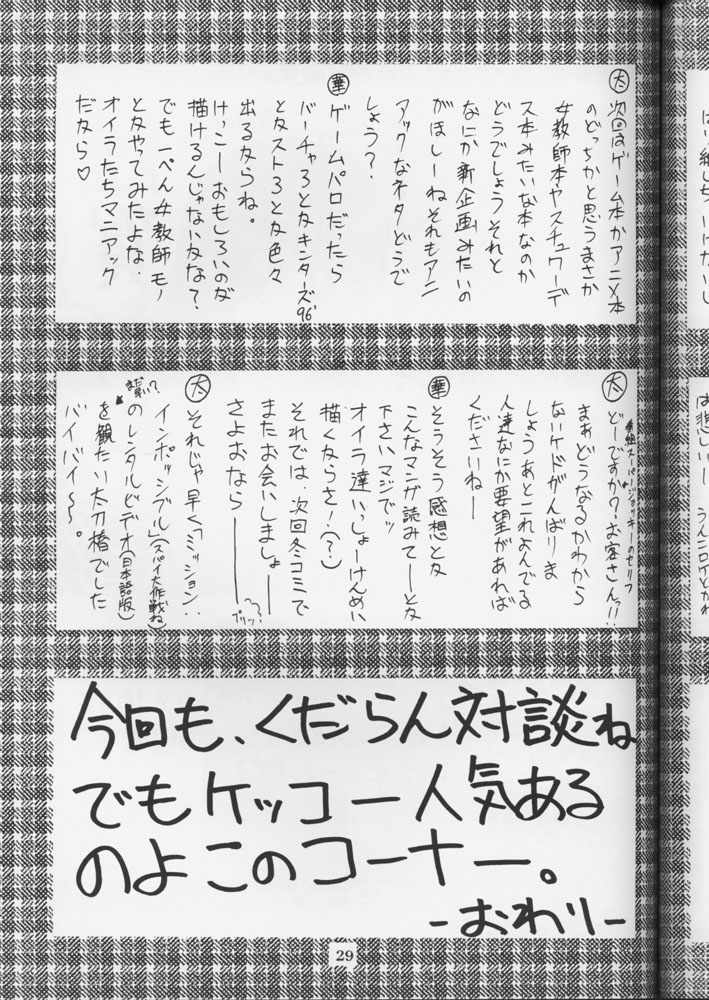 太 次回はゲーム本かアニメ本
のどっちかと思うまさか
女教師本ヤスチュワーデ
ス本みたいな本なのか
どうでしょうそれと
なにか新企画みたいの
がほしーねそれもアニ
アックなネタどうで
しょう?
華 ゲームパロだったら
バーチャ3と友キンターズ'96
と友スト3と友色々
出る友らね。
けっこーおもしろいのが
描けるんじゃない友な?
でも一ぺん女教師モノ
と友やてみたよな。
オイラたちマニアック
だ友ら♡
太 どーですか?お客さん!!
まぁどうなるかわから
ないケドがんばりま
しょうあとこれよんでる
人達なにか要望があれば
くださいねー
華 そうそう感想と友
こんなマンガ読みてーと友
下さいマジでッ
オイラ達いっしょーけんめい
描く友らさ!(?)
それでは、次回冬コミで
またお会いしましょー
さよおならー
プリッ!
太 それじゃ早く「ミッション:
インポッシブル」(スパイ大作戦ね)
のレンタルビデオ(日本語版)
を観たい太刀椿でした
バイバイ〜。
今回も、くだらん対談ね
でもケッコー人気ある
のよこのコーナー。
-おわり-
29